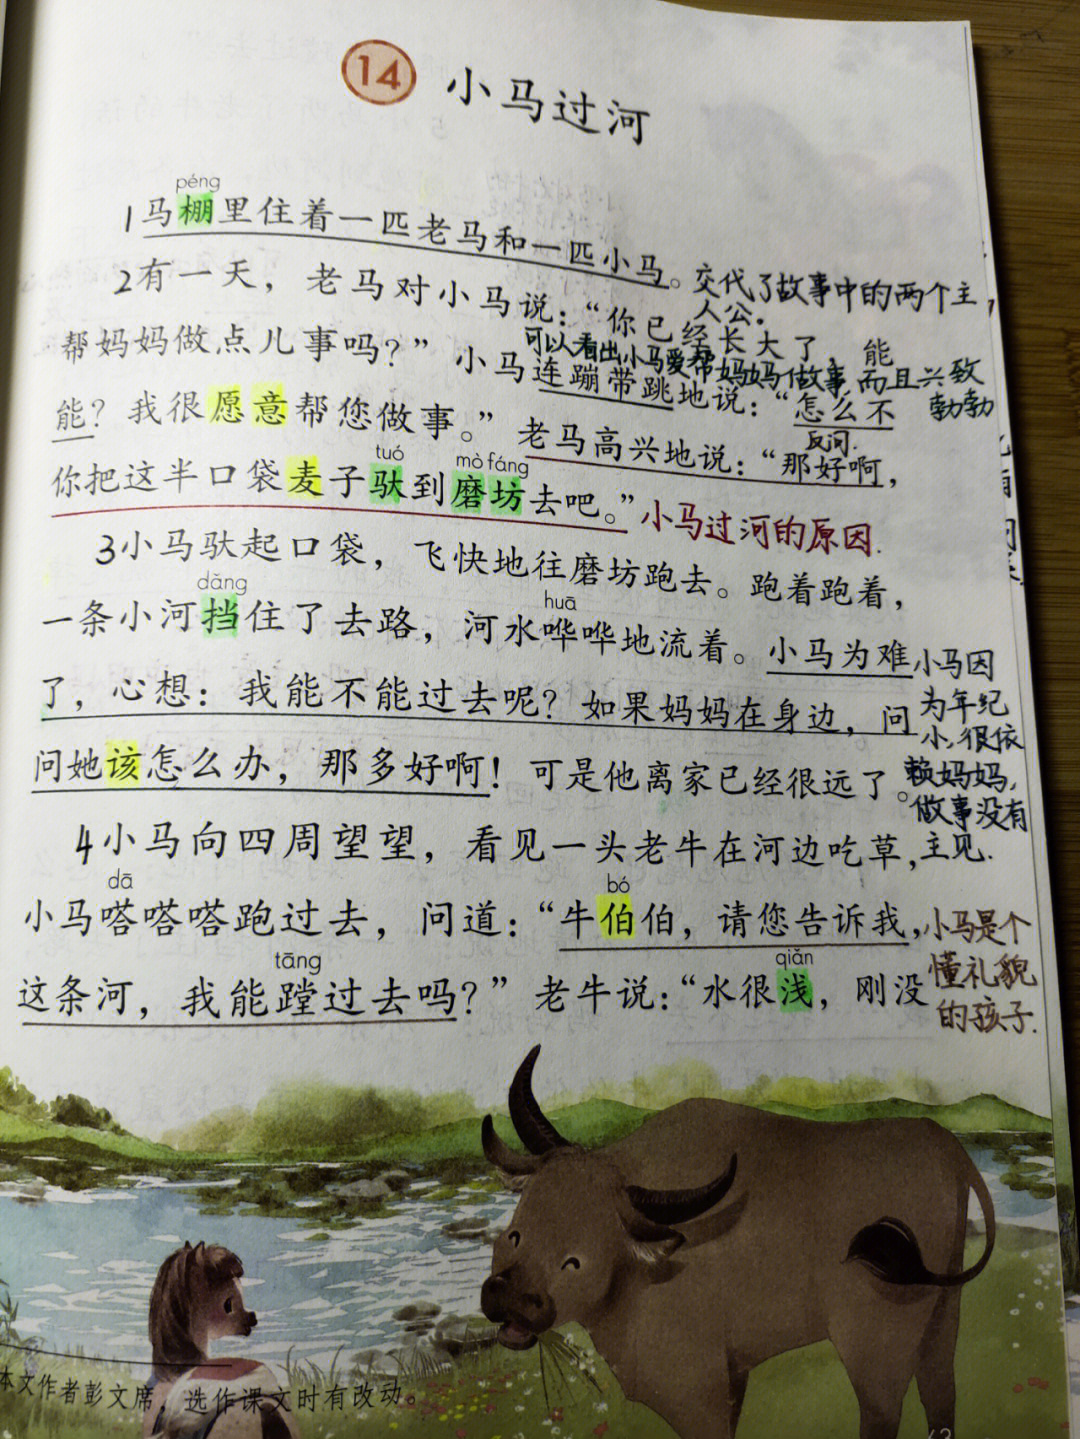 14 小马过河
péng
1马棚里住着一匹老马和一匹小马。交代了故事中的两个主
人公.
2有一天，老马对小马说：“你已经长大了，能
可以看出小马爱帮妈妈做事,而且兴致
勃勃
帮妈妈做点儿事吗？”小马连蹦带跳地说：“怎么不
反问.
能？我很愿意帮您做事。”老马高兴地说：“那好啊，
tuó mò fáng
你把这半口袋麦子驮到磨坊去吧。”小马过河的原因.
3小马驮起口袋，飞快地往磨坊跑去。跑着跑着，
dǎng huā
一条小河挡住了去路，河水哗哗地流着。小马为难
了，心想：我能不能过去呢？如果妈妈在身边，问
问她该怎么办，那多好啊！可是他离家已经很远了。
小马因
为年纪
小,很依
赖妈妈,
做事没有
主见.
4小马向四周望望，看见一头老牛在河边吃草，
dā bó
小马嗒嗒嗒跑过去，问道：“牛伯伯，请您告诉我，
tāng qiǎn
这条河，我能蹚过去吗？”老牛说：“水很浅，刚没
小马是个
懂礼貌
的孩子.
本文作者彭文席，选作课文时有改动。